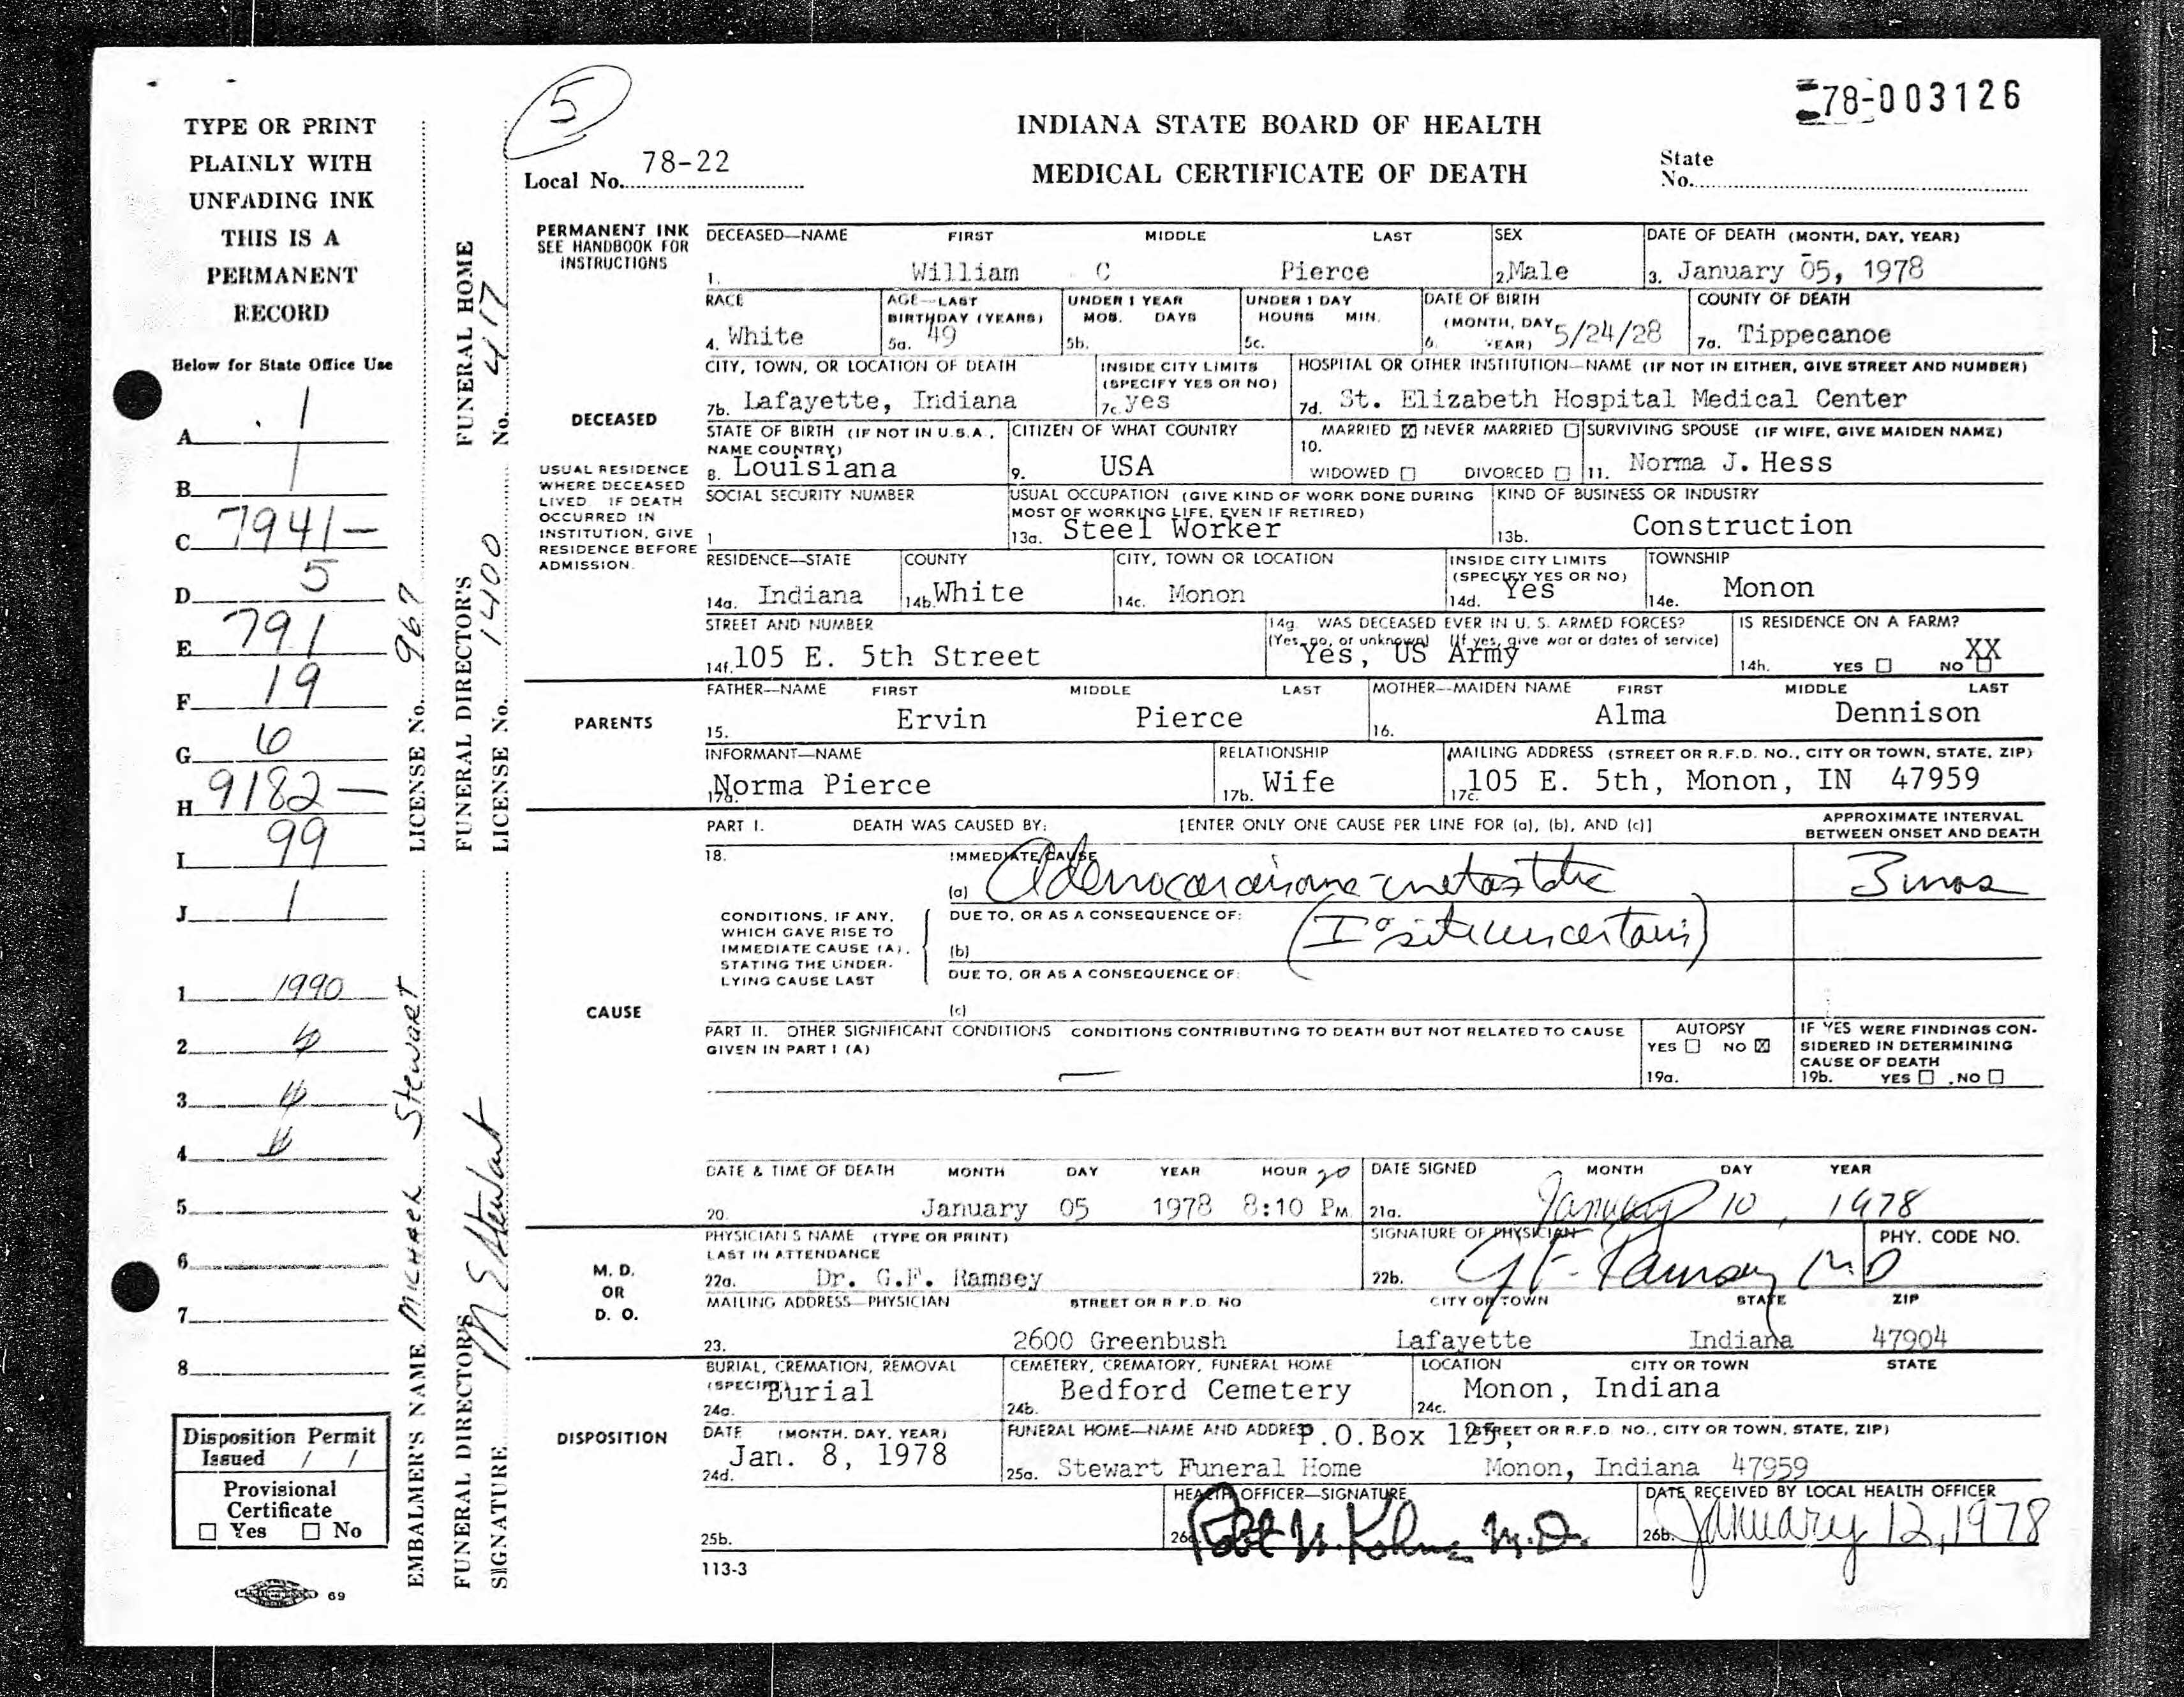 78-003126
5
INDIANA STATE BOARD OF HEALTH
MEDICAL CERTIFICATE OF DEATH
Local No. 78-22
State No.
TYPE OR PRINT
PLAINLY WITH
UNFADING INK
THIS IS A
PERMANENT
RECORD
Below for State Office Use
A 1
B 1
C 7941-
D 5
E 791
F 19
G 6
H 9182-
I 99
J 1
1 1990
2
3
4
5
6
7
8
Disposition Permit
Issued / /
Provisional
Certificate
☐ Yes ☐ No
69
EMBALMER'S NAME Michael Stewart LICENSE No. 967
FUNERAL DIRECTOR'S SIGNATURE M E Stewart
FUNERAL DIRECTOR'S LICENSE No. 1400
FUNERAL HOME No. 417
PERMANENT INK
SEE HANDBOOK FOR
INSTRUCTIONS
DECEASED
USUAL RESIDENCE
WHERE DECEASED
LIVED. IF DEATH
OCCURRED IN
INSTITUTION, GIVE
RESIDENCE BEFORE
ADMISSION.
DECEASED—NAME FIRST MIDDLE LAST
1. William C Pierce
SEX
2. Male
DATE OF DEATH (MONTH, DAY, YEAR)
3. January 05, 1978
RACE
4. White
AGE—LAST BIRTHDAY (YEARS)
5a. 49
UNDER 1 YEAR MOS. DAYS
5b.
UNDER 1 DAY HOURS MIN.
5c.
DATE OF BIRTH (MONTH, DAY, YEAR)
6. 5/24/28
COUNTY OF DEATH
7a. Tippecanoe
CITY, TOWN, OR LOCATION OF DEATH
7b. Lafayette, Indiana
INSIDE CITY LIMITS (SPECIFY YES OR NO)
7c. yes
HOSPITAL OR OTHER INSTITUTION—NAME (IF NOT IN EITHER, GIVE STREET AND NUMBER)
7d. St. Elizabeth Hospital Medical Center
STATE OF BIRTH (IF NOT IN U.S.A., NAME COUNTRY)
8. Louisiana
CITIZEN OF WHAT COUNTRY
9. USA
10. MARRIED ☒ NEVER MARRIED ☐
WIDOWED ☐ DIVORCED ☐
SURVIVING SPOUSE (IF WIFE, GIVE MAIDEN NAME)
11. Norma J. Hess
SOCIAL SECURITY NUMBER
1
USUAL OCCUPATION (GIVE KIND OF WORK DONE DURING MOST OF WORKING LIFE, EVEN IF RETIRED)
13a. Steel Worker
KIND OF BUSINESS OR INDUSTRY
13b. Construction
RESIDENCE—STATE
14a. Indiana
COUNTY
14b. White
CITY, TOWN OR LOCATION
14c. Monon
INSIDE CITY LIMITS (SPECIFY YES OR NO)
14d. Yes
TOWNSHIP
14e. Monon
STREET AND NUMBER
14f. 105 E. 5th Street
14g. WAS DECEASED EVER IN U. S. ARMED FORCES?
(Yes, no, or unknown) (If yes, give war or dates of service)
Yes, US Army
IS RESIDENCE ON A FARM?
14h. YES ☐ NO ☐ XX
PARENTS
FATHER—NAME FIRST MIDDLE LAST
15. Ervin Pierce
MOTHER—MAIDEN NAME FIRST MIDDLE LAST
16. Alma Dennison
INFORMANT—NAME
17a. Norma Pierce
RELATIONSHIP
17b. Wife
MAILING ADDRESS (STREET OR R.F.D. NO., CITY OR TOWN, STATE, ZIP)
17c. 105 E. 5th, Monon, IN 47959
CAUSE
PART I. DEATH WAS CAUSED BY: [ENTER ONLY ONE CAUSE PER LINE FOR (a), (b), AND (c)]
APPROXIMATE INTERVAL
BETWEEN ONSET AND DEATH
18. IMMEDIATE CAUSE
(a) Adenocarcinoma - metastatic 3 mos
CONDITIONS, IF ANY,
WHICH GAVE RISE TO
IMMEDIATE CAUSE (A),
STATING THE UNDER-
LYING CAUSE LAST
DUE TO, OR AS A CONSEQUENCE OF:
(b) (I° site uncertain)
DUE TO, OR AS A CONSEQUENCE OF:
(c)
PART II. OTHER SIGNIFICANT CONDITIONS CONDITIONS CONTRIBUTING TO DEATH BUT NOT RELATED TO CAUSE
GIVEN IN PART I (A)
—
AUTOPSY
YES ☐ NO ☒
19a.
IF YES WERE FINDINGS CON-
SIDERED IN DETERMINING
CAUSE OF DEATH
19b. YES ☐ NO ☐
DATE & TIME OF DEATH MONTH DAY YEAR HOUR 20
20. January 05 1978 8:10 PM.
DATE SIGNED MONTH DAY YEAR
21a. January 10, 1978
M. D.
OR
D. O.
PHYSICIAN'S NAME (TYPE OR PRINT)
LAST IN ATTENDANCE
22a. Dr. G.F. Ramsey
SIGNATURE OF PHYSICIAN
22b. G F Ramsey MD
PHY. CODE NO.
MAILING ADDRESS—PHYSICIAN STREET OR R.F.D. NO CITY OR TOWN STATE ZIP
23. 2600 Greenbush Lafayette Indiana 47904
DISPOSITION
BURIAL, CREMATION, REMOVAL
(SPECIFY)
24a. Burial
CEMETERY, CREMATORY, FUNERAL HOME
24b. Bedford Cemetery
LOCATION CITY OR TOWN STATE
24c. Monon, Indiana
DATE (MONTH, DAY, YEAR)
24d. Jan. 8, 1978
FUNERAL HOME—NAME AND ADDRESS (STREET OR R.F.D. NO., CITY OR TOWN, STATE, ZIP)
P.O.Box 125,
25a. Stewart Funeral Home Monon, Indiana 47959
25b.
HEALTH OFFICER—SIGNATURE
26a. M.D.
DATE RECEIVED BY LOCAL HEALTH OFFICER
26b. January 12, 1978
113-3